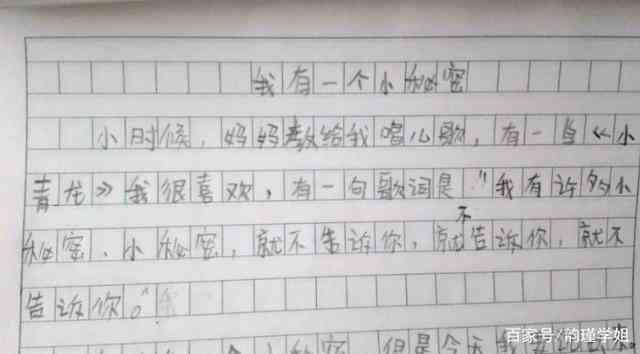 我有一个小秘密
小时候，妈妈教给我唱儿歌，有一首《小
青龙》我很喜欢，有一句歌词是："我有许多小
秘密，小秘密，就不告诉你，就不告诉你，就不
告诉你。"
秘密，但是今天我
百家号/韵瑾学姐